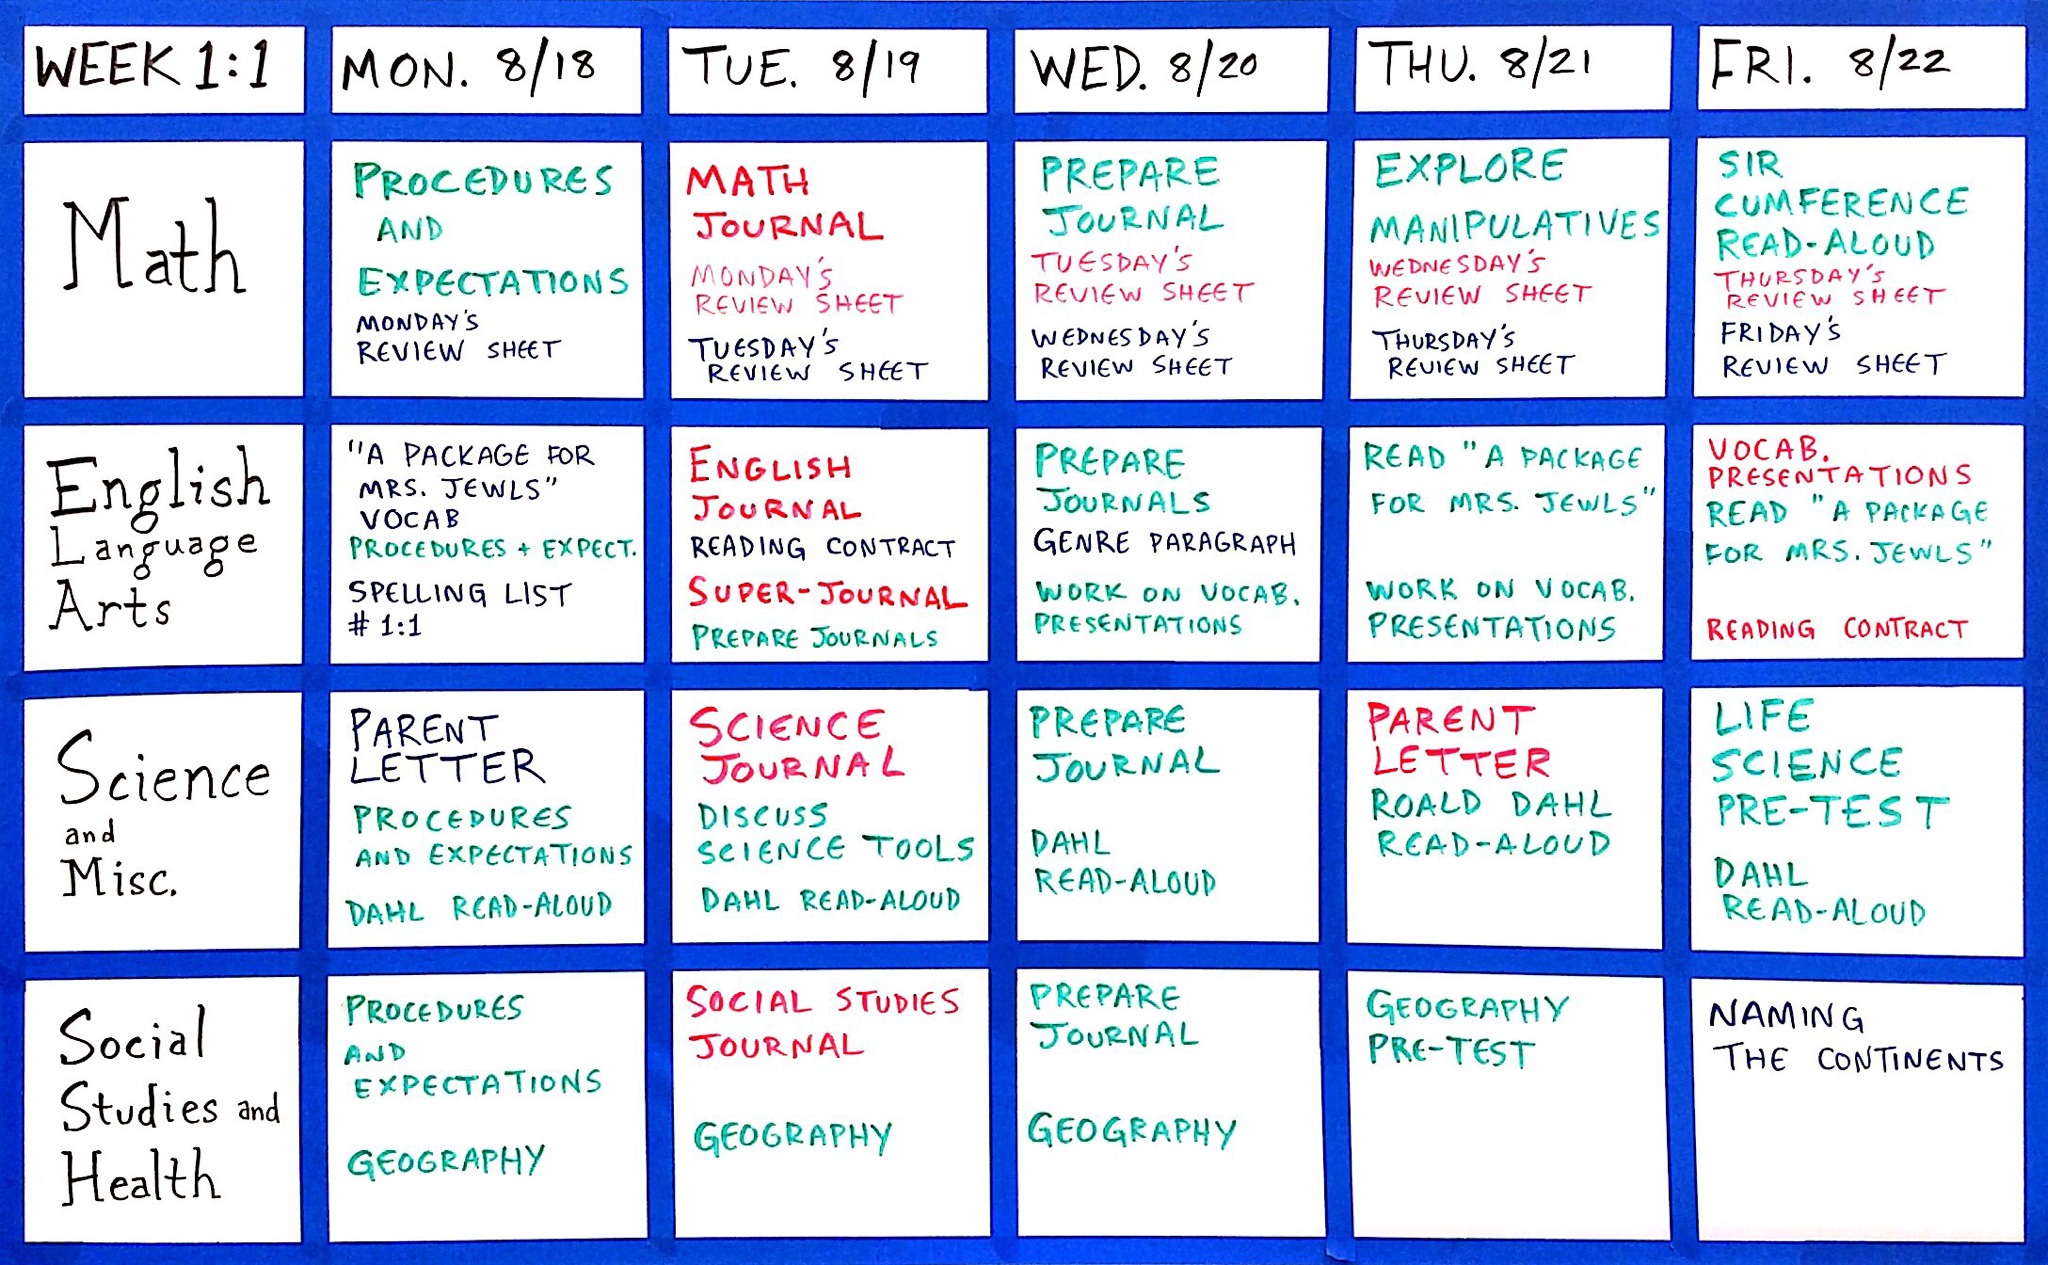 WEEK 1:1
MON. 8/18
TUE. 8/19
WED. 8/20
THU. 8/21
FRI. 8/22
Math
PROCEDURES
AND
EXPECTATIONS
MONDAY'S
REVIEW SHEET
MATH
JOURNAL
MONDAY'S
REVIEW SHEET
TUESDAY'S
REVIEW SHEET
PREPARE
JOURNAL
TUESDAY'S
REVIEW SHEET
WEDNESDAY'S
REVIEW SHEET
EXPLORE
MANIPULATIVES
WEDNESDAY'S
REVIEW SHEET
THURSDAY'S
REVIEW SHEET
SIR
CUMFERENCE
READ-ALOUD
THURSDAY'S
REVIEW SHEET
FRIDAY'S
REVIEW SHEET
English
Language
Arts
"A PACKAGE FOR
MRS. JEWLS"
VOCAB
PROCEDURES + EXPECT.
SPELLING LIST
# 1:1
ENGLISH
JOURNAL
READING CONTRACT
SUPER-JOURNAL
PREPARE JOURNALS
PREPARE
JOURNALS
GENRE PARAGRAPH
WORK ON VOCAB.
PRESENTATIONS
READ "A PACKAGE
FOR MRS. JEWLS"
WORK ON VOCAB.
PRESENTATIONS
VOCAB.
PRESENTATIONS
READ "A PACKAGE
FOR MRS. JEWLS"
READING CONTRACT
Science
and
Misc.
PARENT
LETTER
PROCEDURES
AND EXPECTATIONS
DAHL READ-ALOUD
SCIENCE
JOURNAL
DISCUSS
SCIENCE TOOLS
DAHL READ-ALOUD
PREPARE
JOURNAL
DAHL
READ-ALOUD
PARENT
LETTER
ROALD DAHL
READ-ALOUD
LIFE
SCIENCE
PRE-TEST
DAHL
READ-ALOUD
Social
Studies and
Health
PROCEDURES
AND
EXPECTATIONS
GEOGRAPHY
SOCIAL STUDIES
JOURNAL
GEOGRAPHY
PREPARE
JOURNAL
GEOGRAPHY
GEOGRAPHY
PRE-TEST
NAMING
THE CONTINENTS